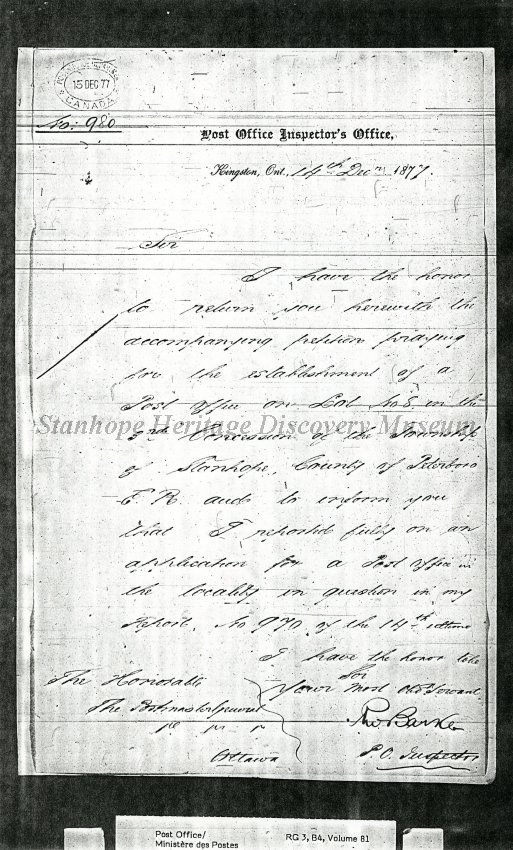 15 DEC 77
CANADA
No: 980
Post Office Inspector's Office,
Kingston, Ont., 14th Decr 1877.
Sir
I have the honor
to return you herewith the
accompanying petition praying
for the establishment of a
Post Office on Lot No 8, in the
Stanhope Heritage Discovery Museum
3rd Concession of the Township
of Stanhope, County of Peterboro
E. R. and to inform you
that I reported fully on an
application for a Post Office in
the locality in question in my
report, No 970, of the 14th ultimo
I have the honor to be
Sir
Your most Obt Servant
The Honorable
The Postmaster General
Ottawa
Barker
P.O. Inspector
Post Office/
Ministère des Postes
RG 3, B4, Volume 81